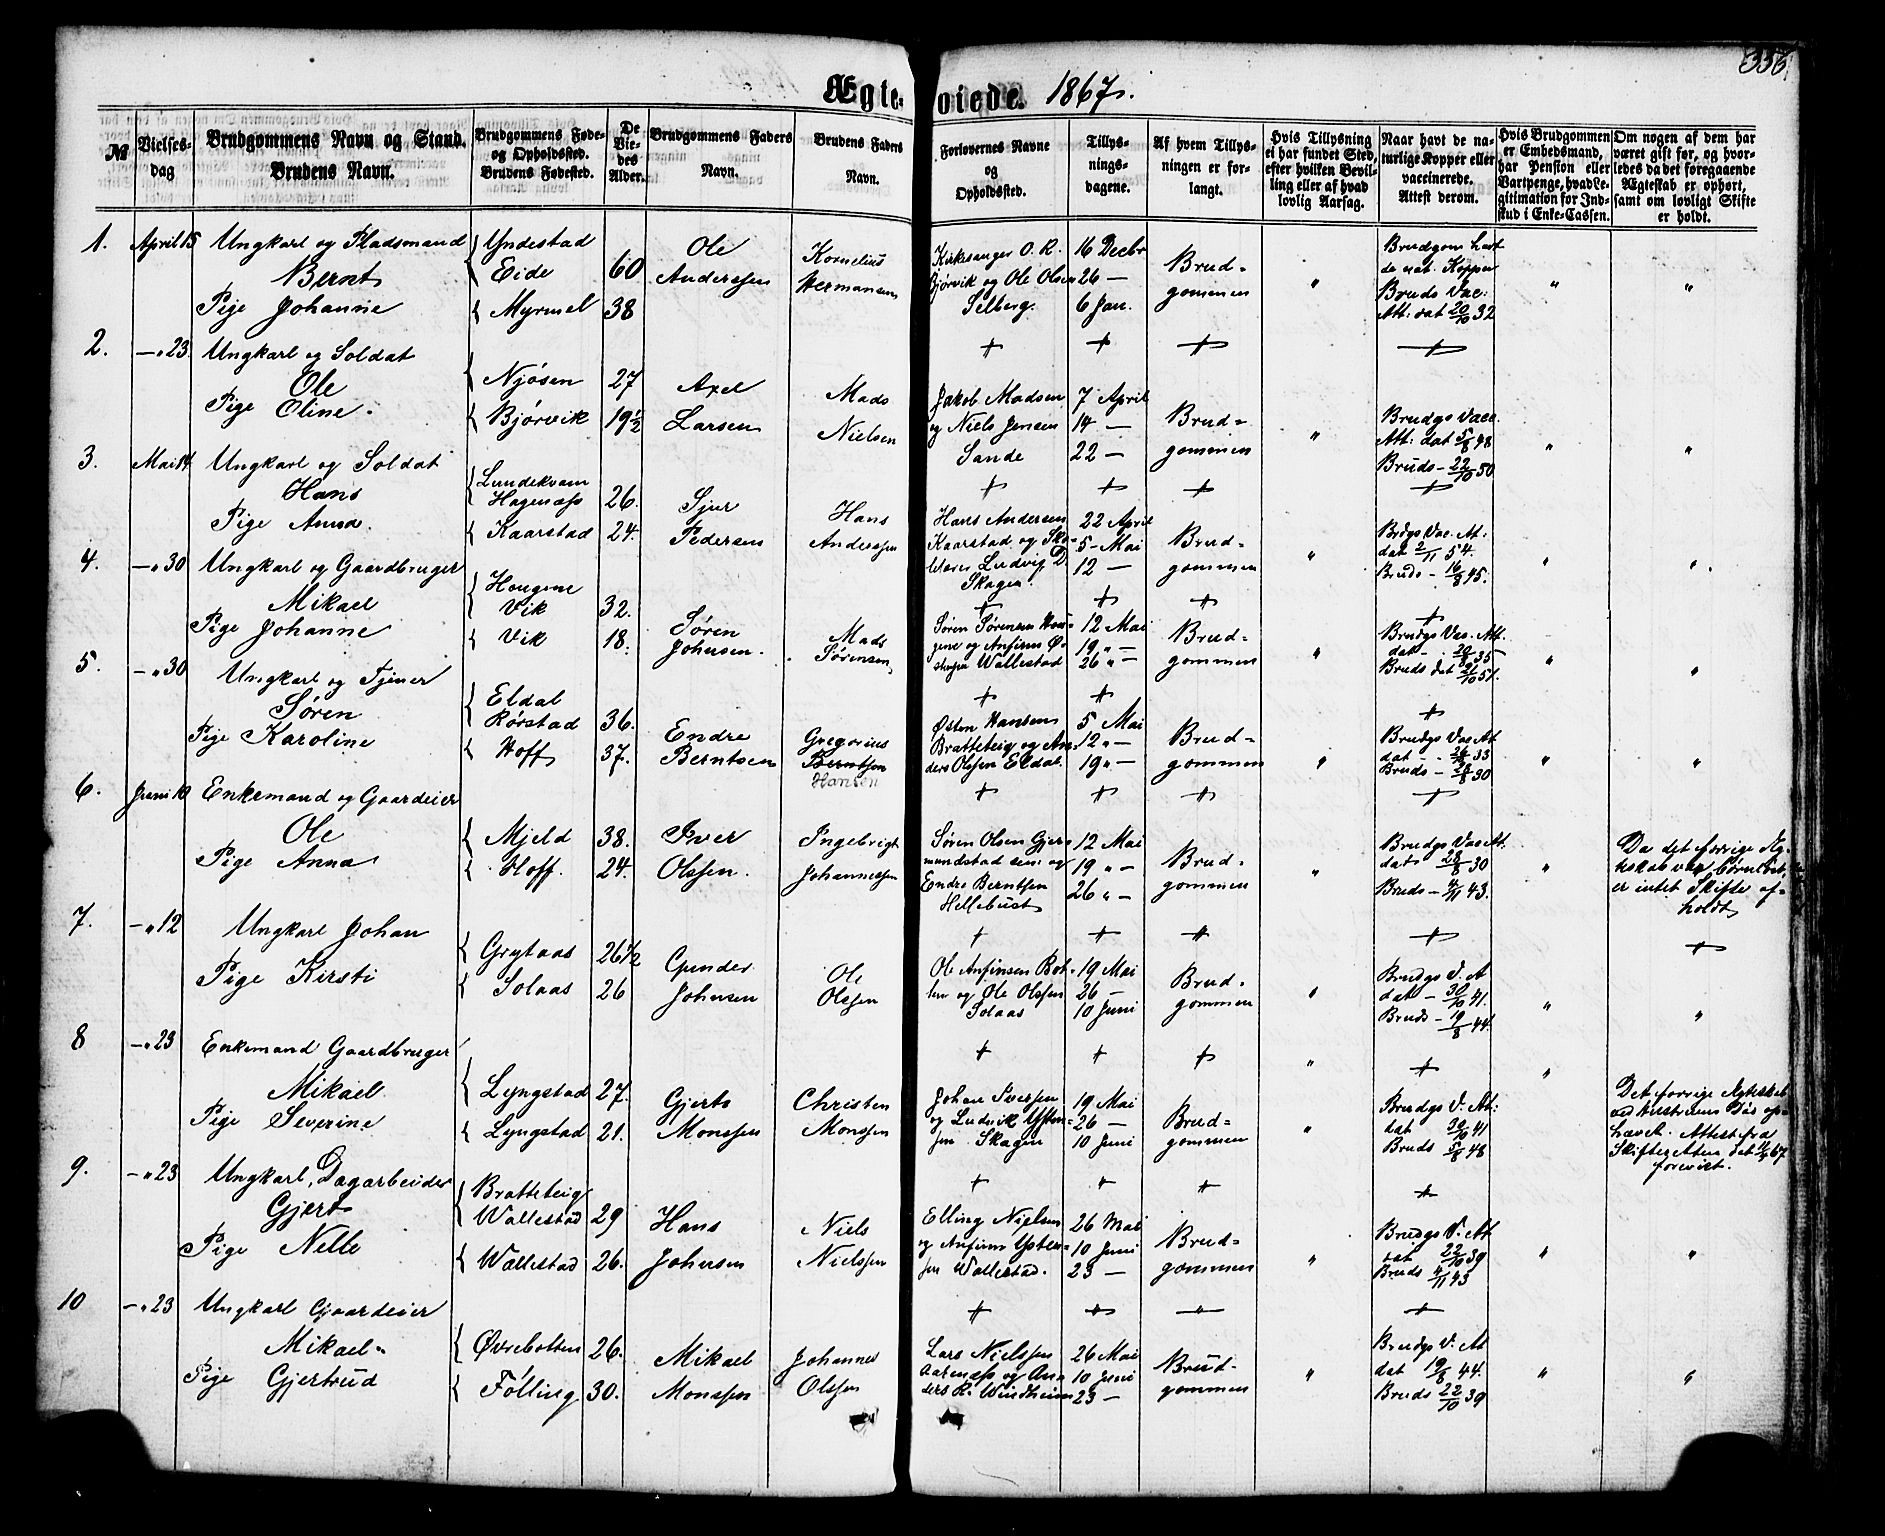 336
Ægte- viede. 1867.
№
Vielses-
dag
Brudgommens Navn og Stand.
Brudens Navn.
Brudgommens Føde-
og Opholdssted.
Brudens Fødested.
De
Vie-
des
Alder.
Brudgommens Faders
Navn.
Brudens Faders
Navn.
Forlovernes Navne
og
Opholdssted.
Tillys-
nings-
dagene.
Af hvem Tillys-
ningen er for-
langt.
Hvis Tillysning
ei har fundet Sted,
efter hvilken Bevil-
ling eller af hvad
lovlig Aarsag.
Naar havt de na-
turlige Kopper eller
vaccinerede.
Attest derom.
Hvis Brudgommen
er Embedsmand,
har Pension eller
Vartpenge, hvad Le-
gitimation for Ind-
skud i Enke-Cassen.
Om nogen af dem har
været gift før, og hvor-
ledes da det foregaaende
Ægteskab er ophørt,
samt om lovligt Skifte
er holdt.
1. April 15 Ungkarl og Pladsmand
Bernt
Pige Johanne
Yndestad
Eide 60
Myrmel 38
Ole
Anderssen
Kornelius
Hermansen
Kirkesanger O. R.
Bjørvik og Ole Olsen
Selberg.
16 Decbr
26 —
6 Jan.
Brud-
gommen
"
Brudgom havt
de nat. Kopper
Bruds Vac:
Att: dat 20/10 32
"
"
2. — " 23 Ungkarl og Soldat
Ole
Pige Oline.
Njøsen 27
Bjørvik 19½
Axel
Larsen
Mads
Nielsen
Jakob Madsen
og Niels Jensen
Sande
7 April
14 —
22 —
Brud-
gommen
"
Brudgs Vacc.
Att: dat 5/8 48
Bruds — 22/10 50
"
"
3. Mai 14 Ungkarl og Soldat
Hans
Pige Anna.
Lundekvam
Hagenæss 26.
Kaarstad 24.
Sjur
Pedersen
Hans
Anderssen
Hans Andersen
Kaarstad og Sko-
lelærer Ludvig D.
Skagen.
22 April
5 - Mai
12 —
Brud-
gommen
"
Brdgs Vac. At.
dat 2/11 54.
Bruds — 16/8 45.
"
"
4. — " 30 Ungkarl og Gaardbruger
Mikael
Pige Johanne
Hougene
Vik 32.
Vik 18.
Søren
Johnsen.
Mads
Sørensen
Søren Sørensen Hou-
gene og Anfinn Ø-
stensen Wallestad
12 Mai
19 " —
26 " —
Brud-
gommen
"
Brudgs Vac. Att.
dat — 20/8 35
Bruds dat 26/10 51.
"
"
5. — " 30 Ungkarl og Tjener
Søren
Pige Karoline
Eldal
Rørstad 36.
Hoff 37.
Endre
Berntsen
Gregorius
Berntsen
Hansen
Østen Hansen
Bratteteig og An-
ders Olssen Eldal.
5 Mai
12 " —
19 " —
Brud-
gommen
"
Brudgs Vac Att
dat — 26/8 33
Bruds — 28/8 30
"
"
6. Juni 10 Enkemand og Gaardeier
Ole
Pige Anna
Mjeld 38.
Hoff. 24.
Iver
Olssen.
Ingebrigt
Johannessen
Søren Olsen Gjer-
mundstad sen: og
Endre Berntsen
Hellebust
12 Mai
19 " —
26 " —
Brud-
gommen
"
Brudgs Vac At.
dat 28/8 30
Bruds — 4/11 43.
"
Da det forrige Æg-
teskab var børnløst,
er intet Skifte af-
holdt
7. — " 12 Ungkarl Johan
Pige Kirsti
Grytaas 26½
Solaas 26
Gunder
Johnsen
Ole
Olssen
Ole Anfinsen Bot-
len og Ole Olssen
Solaas
19 Mai
26 —
10 Juni
Brud-
gommen
"
Brudgs V. A
dat — 30/10 41.
Bruds — 19/8 44.
"
"
8 — " 23 Enkemand Gaardbruger
Mikael
Pige Severine
Lyngstad 27.
Lyngstad 21.
Gjert
Monssen
Christen
Monssen
Johan Iverssen
og Ludvik Østen-
sen Skagen
19 Mai
26 —
10 Juni
Brud-
gommen
"
Brudgs V. At:
dat 30/10 41
Bruds 5/8 48
"
Det forrige Ægteskab
ved Hustruens Død op-
hævet. Attest fra
Skifteretten dat 4/5 67
forevist.
9. — " 23 Ungkarl, Dagarbeider
Gjert
Pige Nelle
Bratteteig
Wallestad 29
Wallestad 26.
Hans
Johnsen
Niels
Nielssen
Elling Nielsen
og Anfinn Østen-
sen Wallestad.
26 Mai
10 Juni
23 —
Brud-
gommen
"
Brudgs V. At
dat 22/10 39
Bruds 4/11 43
"
"
10 — " 23 Ungkarl Gaardeier
Mikael
Pige Gjertrud
Øvrebotten 26.
Følling 30.
Mikael
Monssen
Johannes
Olssen
Lars Nielssen
Aarnæss og An-
ders R. Windheim
26 Mai
10 Juni
23 —
Brud-
gommen
"
Brudgs V. At
dat 19/8 44.
Bruds 22/10 39
"
"